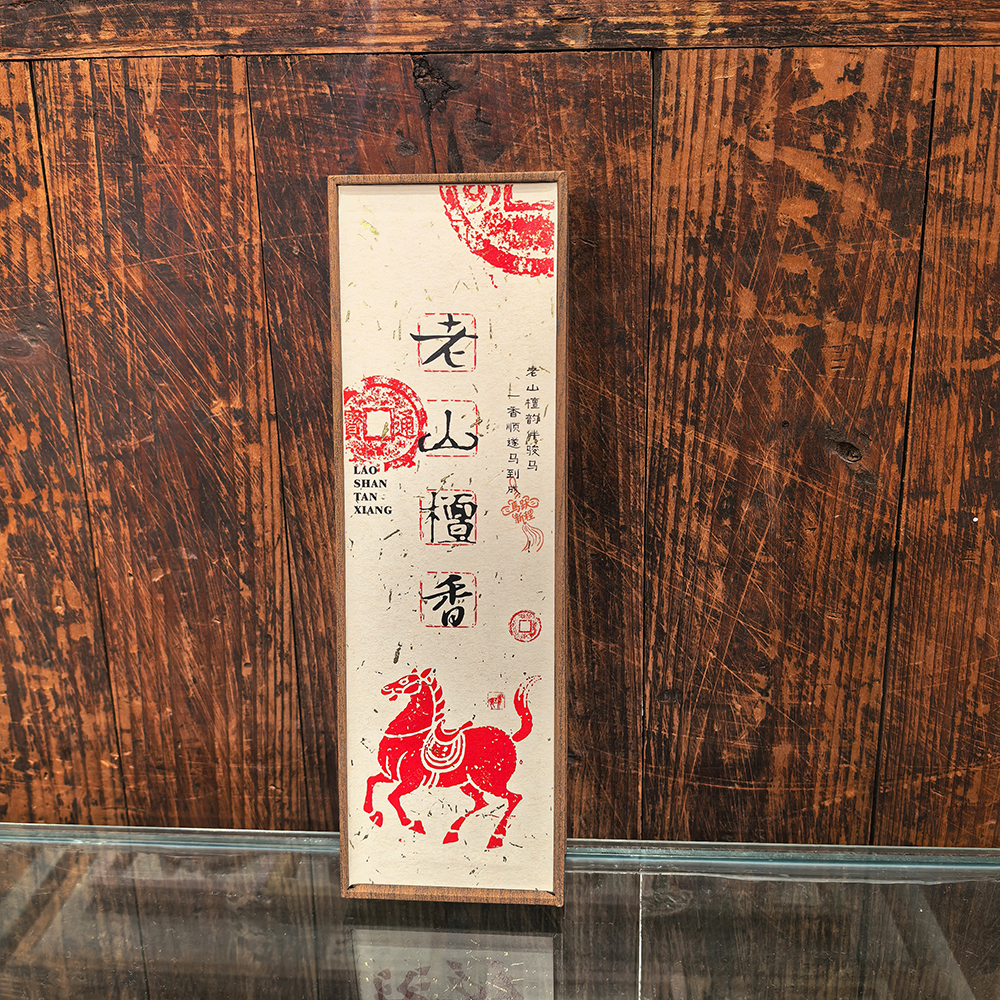 老山檀香
LAO
SHAN
TAN
XIANG
老山檀韵伴骏马
一香顺遂马到成
馬跃
新程
寳通